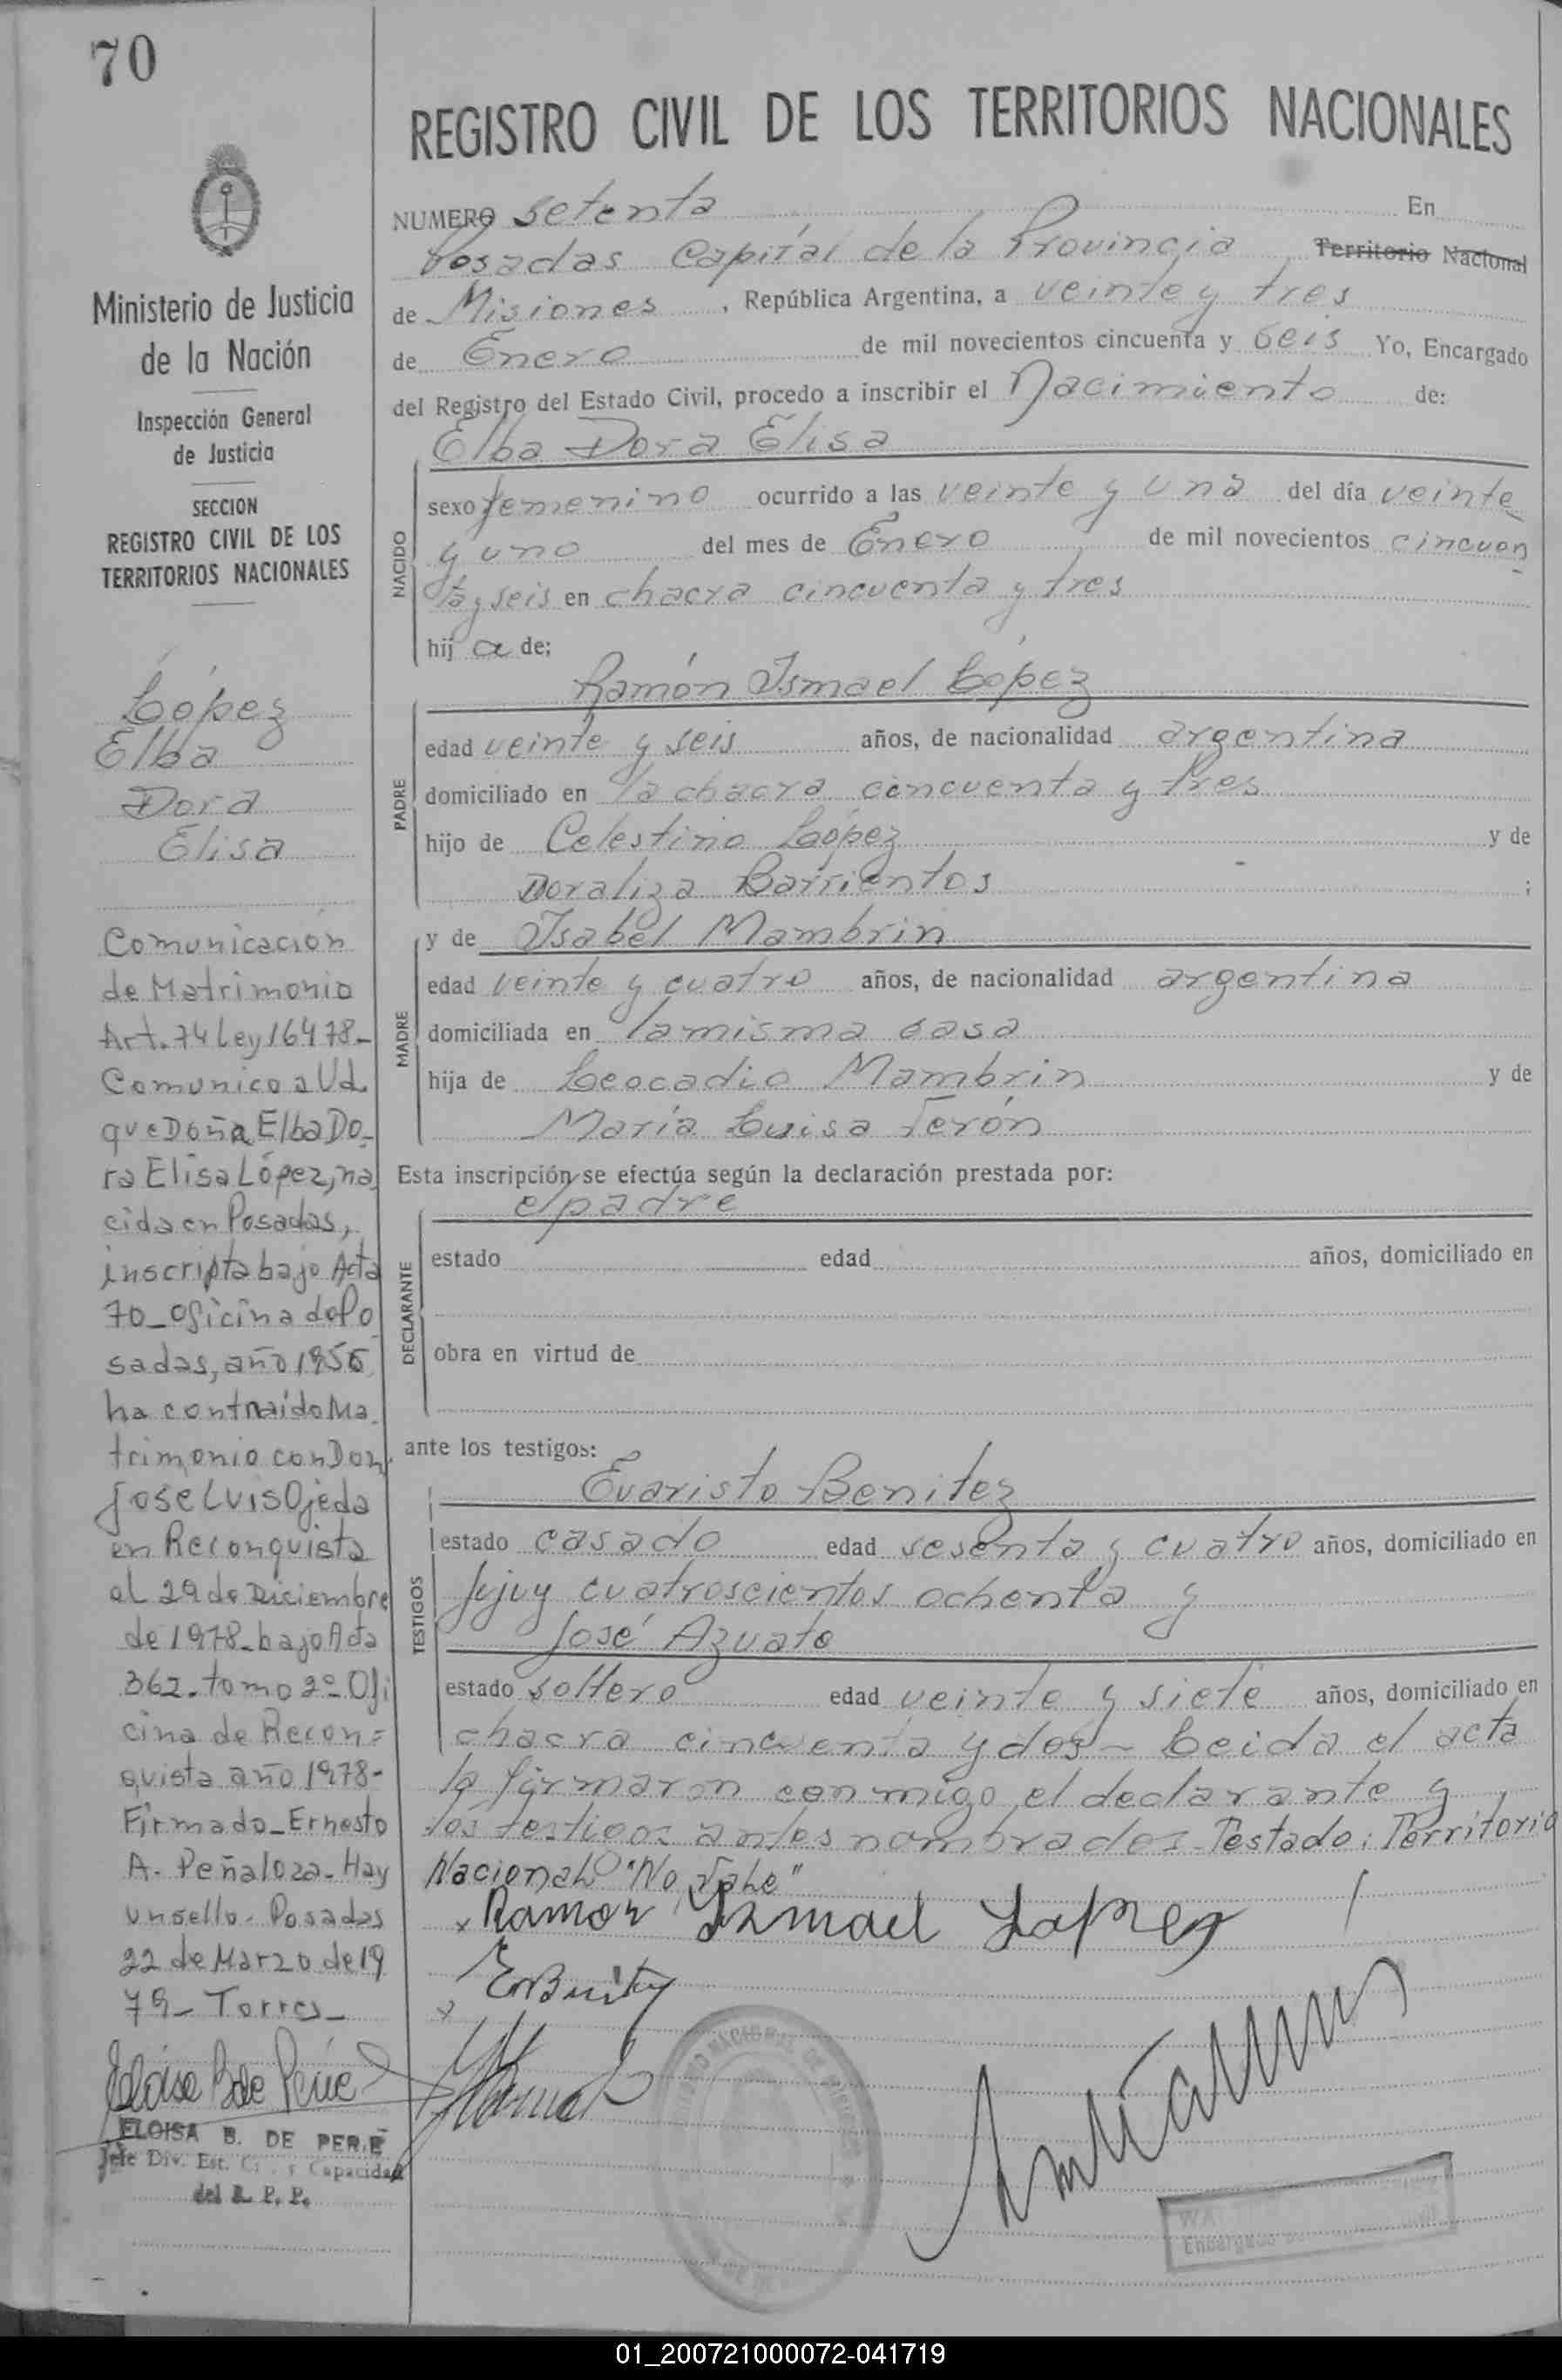 70
Ministerio de Justicia
de la Nación
Inspección General
de Justicia
SECCION
REGISTRO CIVIL DE LOS
TERRITORIOS NACIONALES
López
Elba
Dora
Elisa
Comunicación
de Matrimonio
Art. 74 Ley 16478-
Comunico a Ud.
que Doña Elba Do-
ra Elisa López, na
cida en Posadas,
inscripta bajo Acta
70_Oficina de Po
sadas, año 1956
ha contraído Ma
trimonio con Don
Jose Luis Ojeda
en Reconquista
el 29 de Diciembre
de 1978_bajo Acta
362. tomo 2º Ofi
cina de Recon=
quista año 1978-
Firmado_Ernesto
A. Peñaloza_Hay
un sello. Posadas
22 de Marzo de 19
79_ Torres_
ELOISA B. DE
Jefe Div. Est. y Capacidad
del R. P. P.
REGISTRO CIVIL DE LOS TERRITORIOS NACIONALES
NUMERO setenta En
Posadas Capital de la Provincia Territorio Nacional
de Misiones, República Argentina, a veinte y tres
de Enero de mil novecientos cincuenta y seis Yo, Encargado
del Registro del Estado Civil, procedo a inscribir el Nacimiento de:
Elba Dora Elisa
NACIDO
sexo femenino ocurrido a las veinte y una del día veinte
y uno del mes de Enero de mil novecientos cincuen
ta y seis en chacra cincuenta y tres
hij a de;
Ramón Ismael López
PADRE
edad veinte y seis años, de nacionalidad argentina
domiciliado en la chacra cincuenta y tres
hijo de Celestino López y de
Doraliza Barrientos ;
y de Isabel Mambrin
MADRE
edad veinte y cuatro años, de nacionalidad argentina
domiciliada en la misma casa
hija de Leocadio Mambrin y de
María Luisa Terón
Esta inscripción se efectúa según la declaración prestada por:
el padre
DECLARANTE
estado edad años, domiciliado en
obra en virtud de
ante los testigos:
Evaristo Benitez
TESTIGOS
estado casado edad sesenta y cuatro años, domiciliado en
Jujuy cuatroscientos ochenta y
José Azuato
estado soltero edad veinte y siete años, domiciliado en
chacra cincuenta y dos - Leida el acta
la firmaron conmigo el declarante y
los testigos antes nombrados - Testado: Territorio
Nacional "No Vale"
x Ramon Ismael Lopez
Encargado
01_200721000072-041719